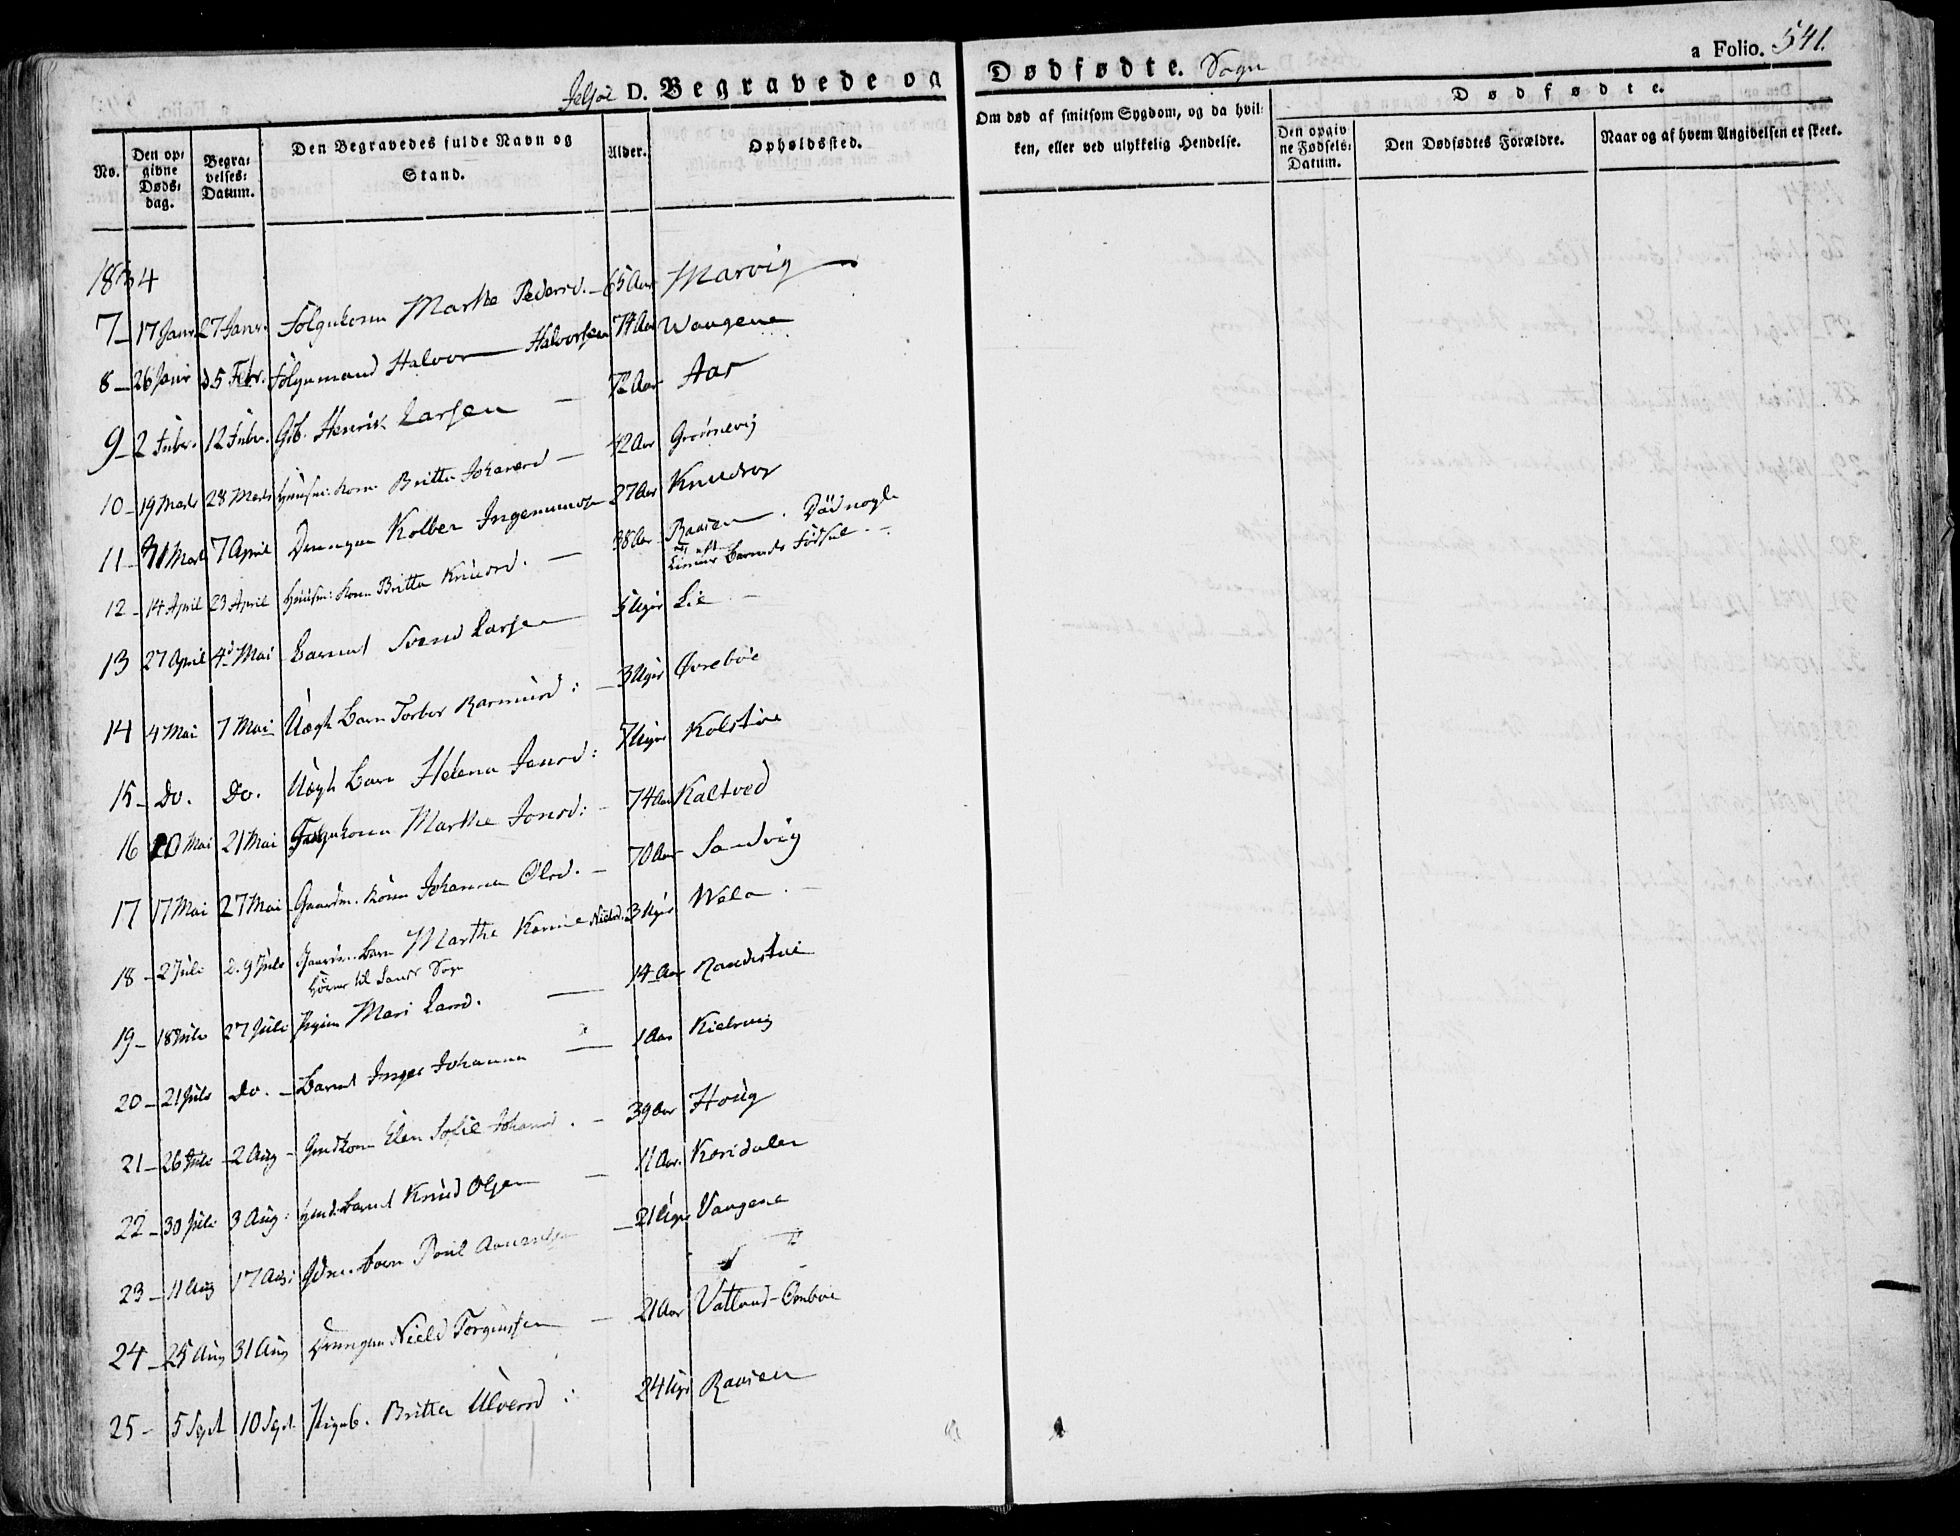 Jelsøe D. Begravede og Dødfødte. Sogn a Folio. 541.
No. Den opgivne Dødsdag. Begravelses-Datum. Den Begravedes fulde Navn og Stand. Alder. Opholdssted. Om død af smitsom Sygdom, og da hvilken, eller ved ulykkelig Hendelse. Dødfødte. Den opgivne Fødsels-Datum. Den Dødfødtes Forældre. Naar og af hvem Angivelsen er skeet.
1834
7 - 17 Janr 27 Janr. Følgekone Marthe Pedersd. - 65 Aar Marvig
8 - 26 Janr d 5 Febr. Følgemand Halvor Halvorsen 74 Aar Wangene
9 - 2 Febr. 12 Febr. Gb. Henrik Larsen - 72 Aar Aar
10 - 19 Marts 28 Marts Huusm: Kone Britta Johansd - 42 Aar
11 - 31 Mart 7 April Drengen Kolben Ingemunds 27 Aar
12 - 14 April 23 April Huusm: Kone Britta Knudsd. - 38 Aar Raaien. Død nogle
Timer eft Barnets Fødsel -
13 27 April 4d Mai Barnet Svend Larsen 5 Uger Lie -
14 4 Mai 7 Mai Uægt Barn Torber Rasmusd: - 3 Uger Øvrebøe
15 - Do. Do. Uægt Barn Helena Jensd: 7 Uger Kolstøe
16 20 Mai 21 Mai Følgekone Marthe Jonsd: - 74 Aar Kaltved
17 17 Mai 27 Mai Gaardm. Kone Johanna Olsd. - 70 Aar Sandvig
18 - 2 Juli d. 9 Juli Gaardm. Barn Marthe Karine Nielsd: 3 Uger Wela. -
hører til Sands Sogn
19 - 18 Juli 27 Juli Pigen Mari Larsd. - 14 Aar
20 - 21 Juli Do. - Barnet Inger Johanna - 1 Aar
21 - 26 Juli - 2 Aug - Gmdkone Elen Sofie Johansd. - 39 Aar Houg
22 - 30 Juli 3 Aug: Gmd: Barnet Knud Olsen - 11 Aar. Koridalen
23 - 11 Aug 17 Aug: Gdm. Barn Poul - 21 Uger Vangene
24 - 25 Aug 31 Aug Drengen Niels Torgiussen - 21 Aar Vatland-Ombøe
25 - 5 Sept 10 Sept. Pigeb. Britta : 24 Uger Raaien